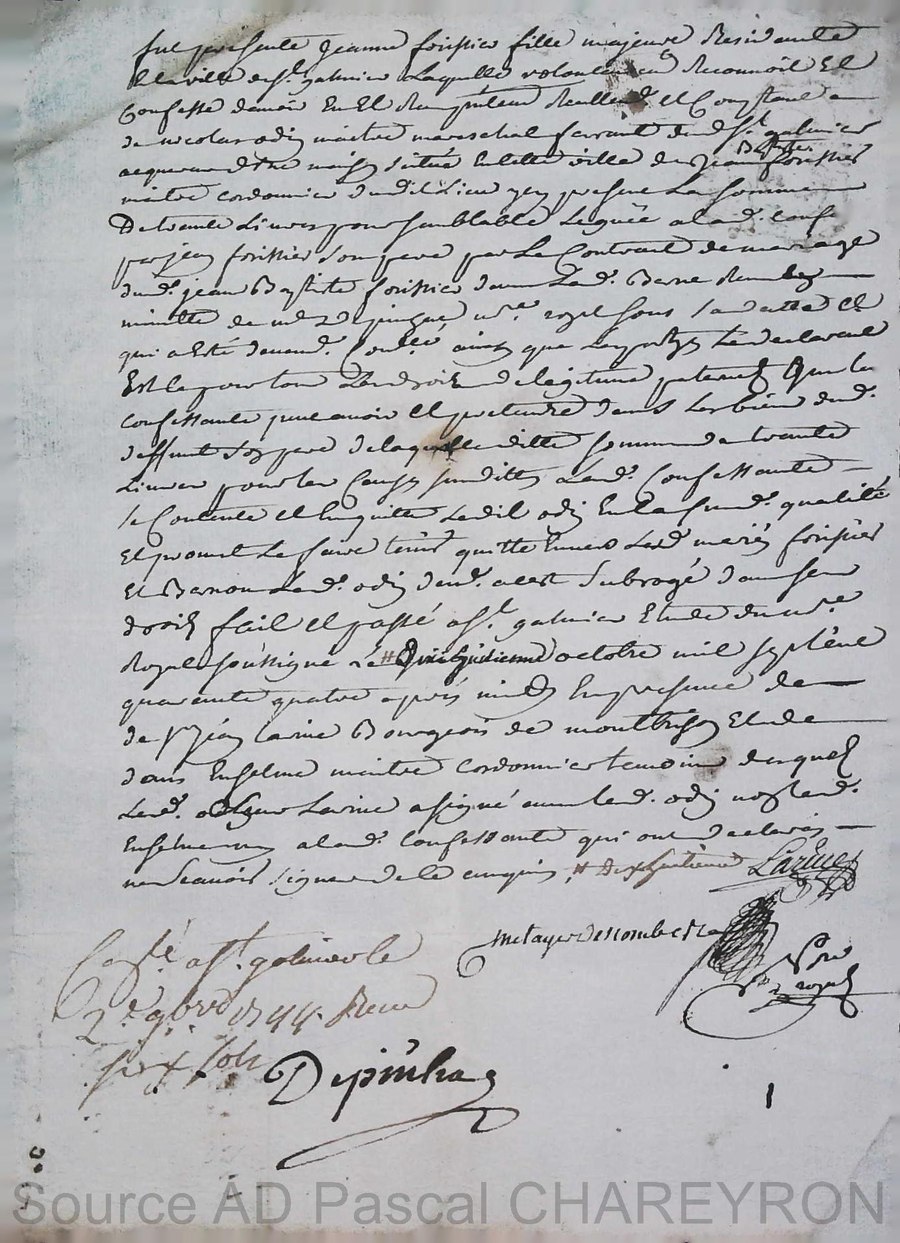 fut présente jeanne forissier fille majeure Residante
de la ville de st galmier Laquelle volontairemt Reconnoit Et
Confesse d'avoir Eu Et Recu Rellement et Comptant
de nicolas odin maitre mareschal ferrant dud. st galmier
acquereur d'une maison située En cette ville de jean Baptiste forissier
maitre cordonnier dudit Lieu present La somme
De trente Livres pour semblable Leguée a lad. conf.
par jean forissier son pere par Le Contrant de mariage
dud. jean Baptiste forissier avec Lad. Barou
minutte de me notre royal sous sa datte Et
qui a Esté Comtrolé ainsy que Les parties Le declarent
Est ce pour tous Les droits de legitime paternels Que la
confessante peut avoir Et pretendre dans Les biens dud.
deffunt son pere de laquelle ditte somme de trente
Livres pour les Causes susdittes Lad. Confessante
se Contente et En quitte Ledit odin En la susd. qualité
Et promet Le faire tenir quitte Envers Lesd. mariés forissier
Et Barou Led. odin subrogé dans ses
droits fait et passé a st galmier Etude du nore
Royal soussigné Le # octobre mil sept cent
quarante quatre après midy En presence de
de sr jean Larine Bourgeois de montbrison Et de
Enselme maitre cordonnier temoins desquels
Led. sieur Larine a signé avec led. odin non led.
Enselme ny a lad. Confessante qui ont declarés
ne scavoir signer de ce enquis # dix huitieme Larine
metayer descombes
Nore
royal
Con.lé a st galmier le
2e 9bre 1744. Recu
six sols
Depinhac
1
Source AD Pascal CHAREYRON